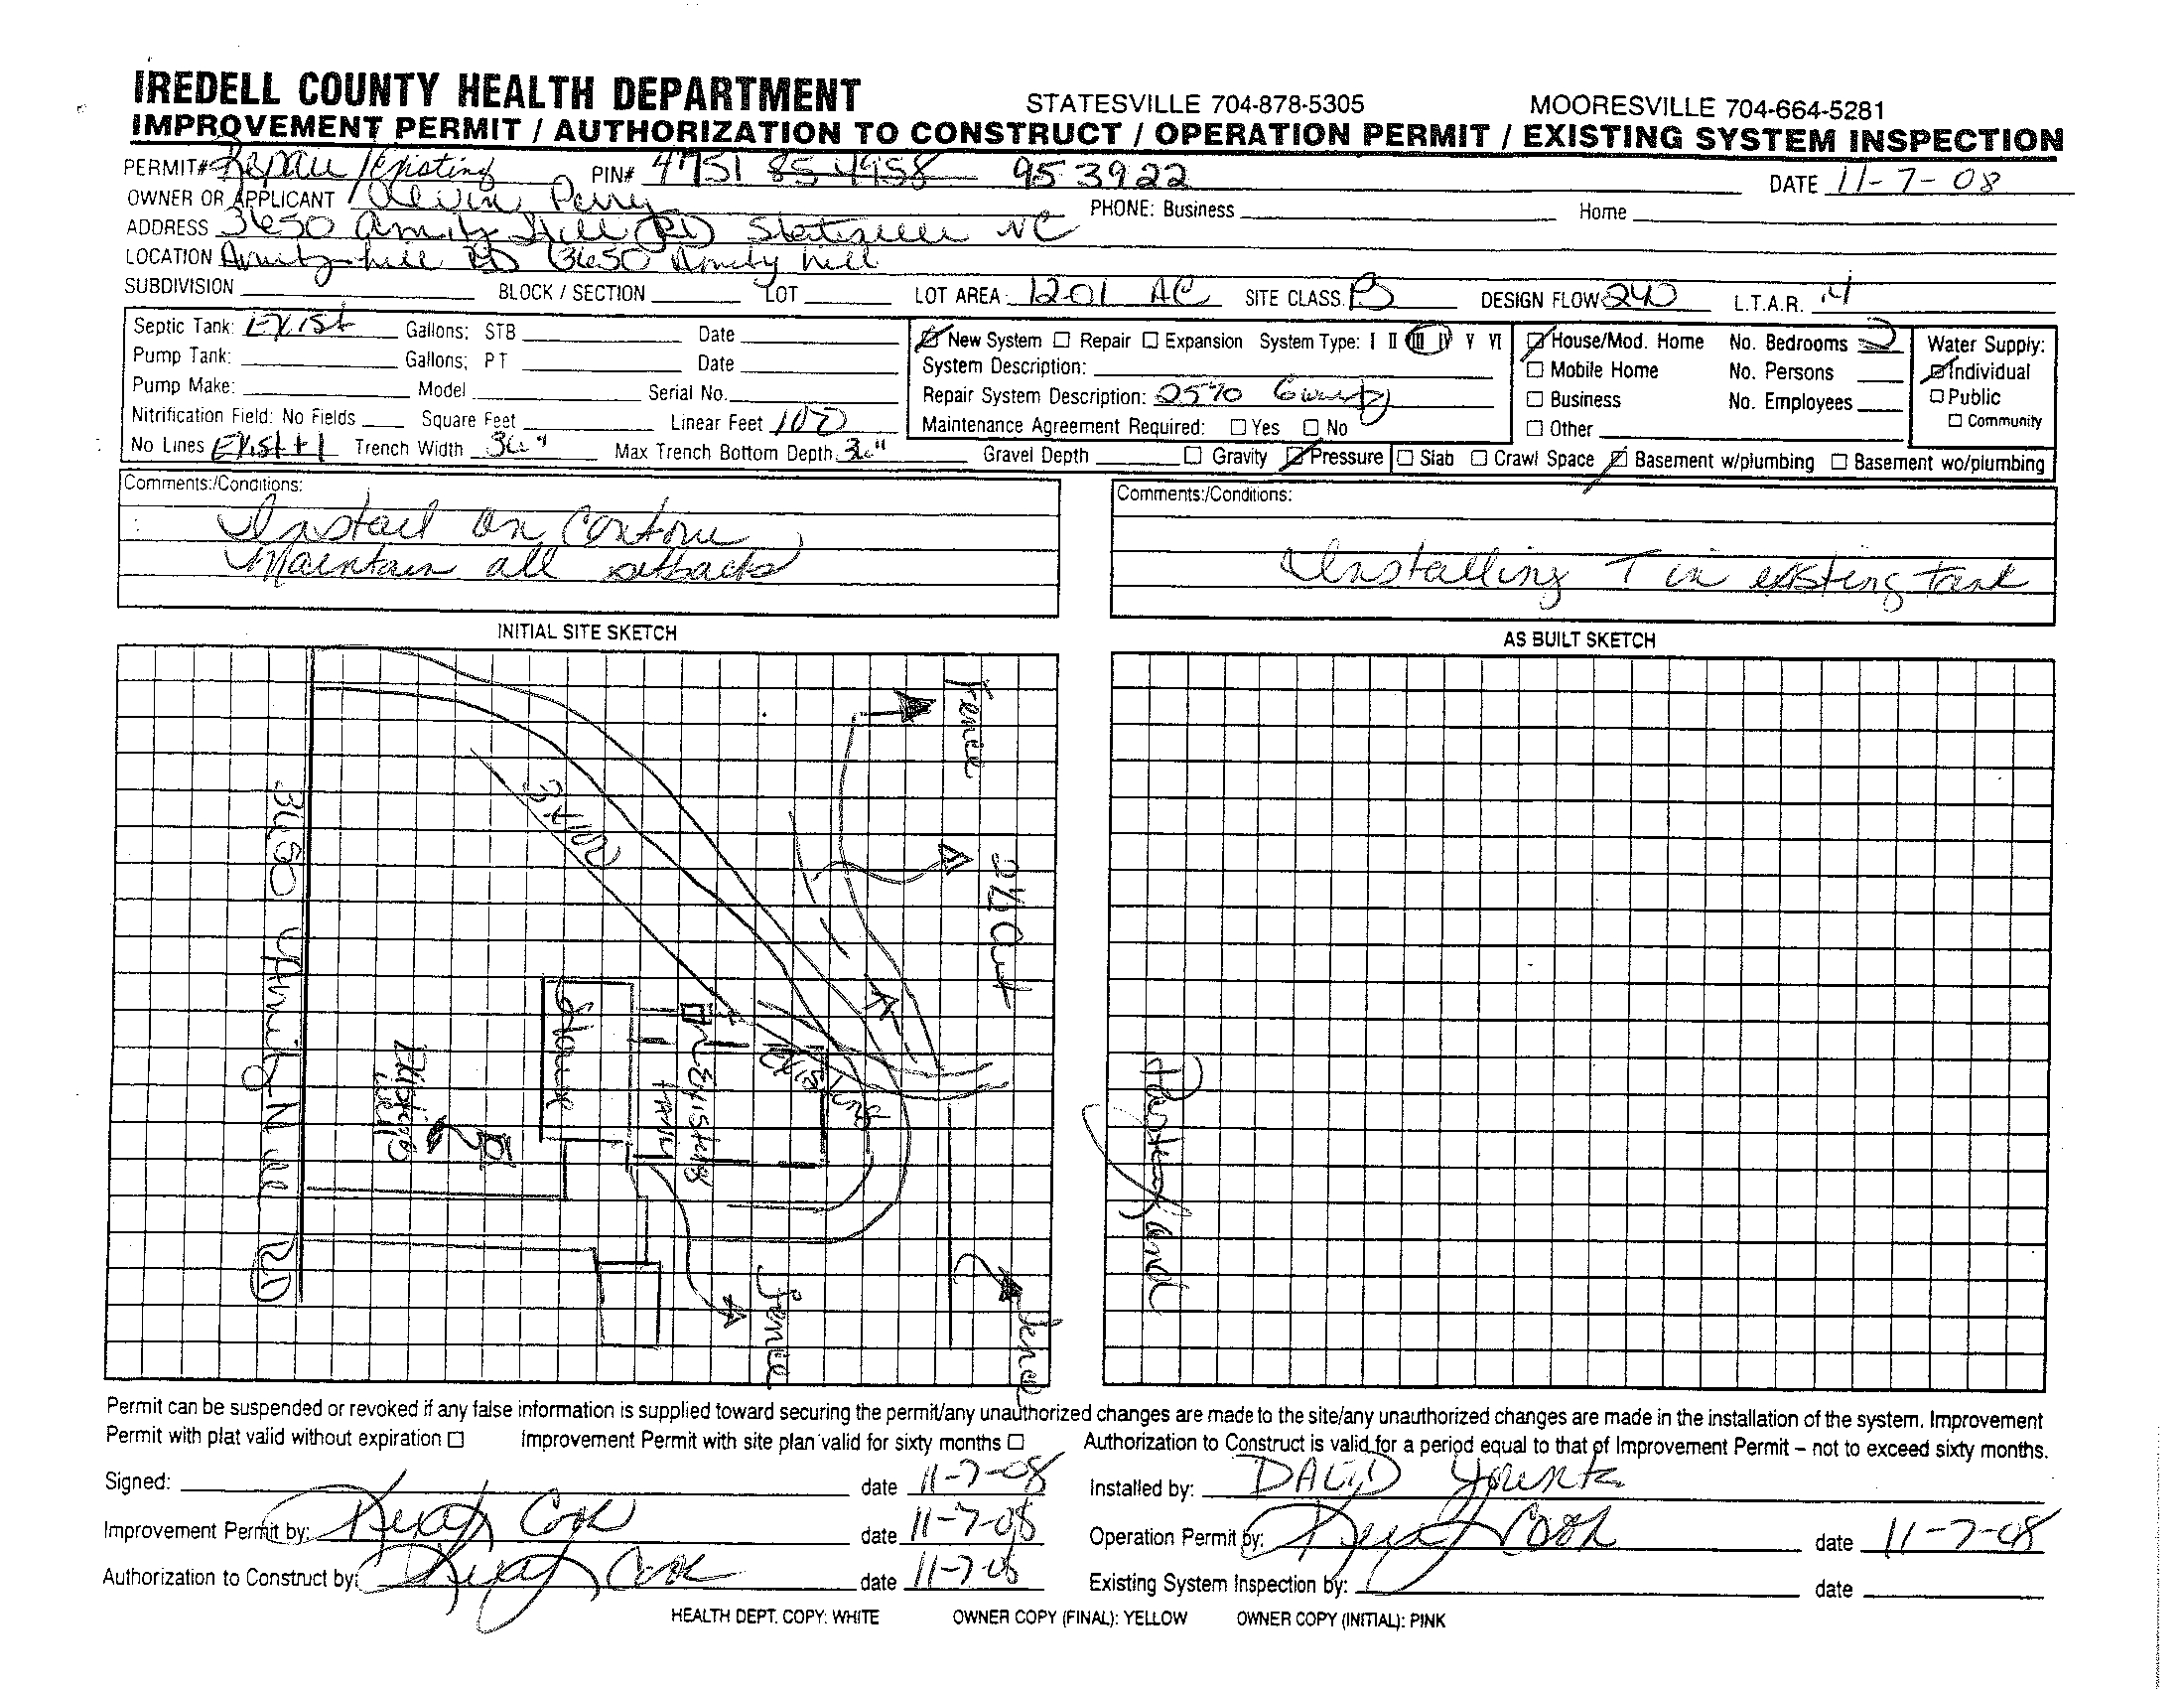 IREDELL COUNTY HEALTH DEPARTMENT STATESVILLE 704-878-5305 MOORESVILLE 704-664-5281
IMPROVEMENT PERMIT / AUTHORIZATION TO CONSTRUCT / OPERATION PERMIT / EXISTING SYSTEM INSPECTION
PERMIT# Repair / Existing PIN# 4751 85 4958 95 3922 DATE 11-7-08
OWNER OR APPLICANT Alvin Perry PHONE: Business Home
ADDRESS 3650 Amity Hill RD Statesville NC
LOCATION Amity hill RD 3650 Amity hill
SUBDIVISION BLOCK / SECTION LOT LOT AREA: 1201 AC SITE CLASS. PS DESIGN FLOW 240 L.T.A.R. .4
Septic Tank: Exist Gallons: STB Date
Pump Tank: Gallons: PT Date
Pump Make: Model Serial No.
Nitrification Field: No Fields Square Feet Linear Feet 100
No Lines Exist + 1 Trench Width 36" Max Trench Bottom Depth 36" Gravel Depth ☐ Gravity ☑ Pressure
☑ New System ☐ Repair ☐ Expansion System Type: I II III IV V VI
System Description:
Repair System Description: 25%
Maintenance Agreement Required: ☐ Yes ☐ No
☑ House/Mod. Home No. Bedrooms 2
☐ Mobile Home No. Persons
☐ Business No. Employees
☐ Other
☐ Slab ☐ Crawl Space ☑ Basement w/plumbing ☐ Basement wo/plumbing
Water Supply:
☑ Individual
☐ Public
☐ Community
Comments:/Conditions:
Install on Contour
Maintain all setbacks
Comments:/Conditions:
Installing T in existing tank
INITIAL SITE SKETCH
Fence
3x100
2 1/2 Cut
3650 Amity Hill RD
House
Existing
Existing
TANK
Existing
Fence
Fence
AS BUILT SKETCH
Permit can be suspended or revoked if any false information is supplied toward securing the permit/any unauthorized changes are made to the site/any unauthorized changes are made in the installation of the system. Improvement
Permit with plat valid without expiration ☐ Improvement Permit with site plan valid for sixty months ☐ Authorization to Construct is valid for a period equal to that of Improvement Permit – not to exceed sixty months.
Signed: date 11-7-08 Installed by: DAVID Yount
Improvement Permit by: Cook date 11-7-08 Operation Permit by: Cook date 11-7-08
Authorization to Construct by: Cook date 11-7-08 Existing System Inspection by: date
HEALTH DEPT. COPY: WHITE OWNER COPY (FINAL): YELLOW OWNER COPY (INITIAL): PINK